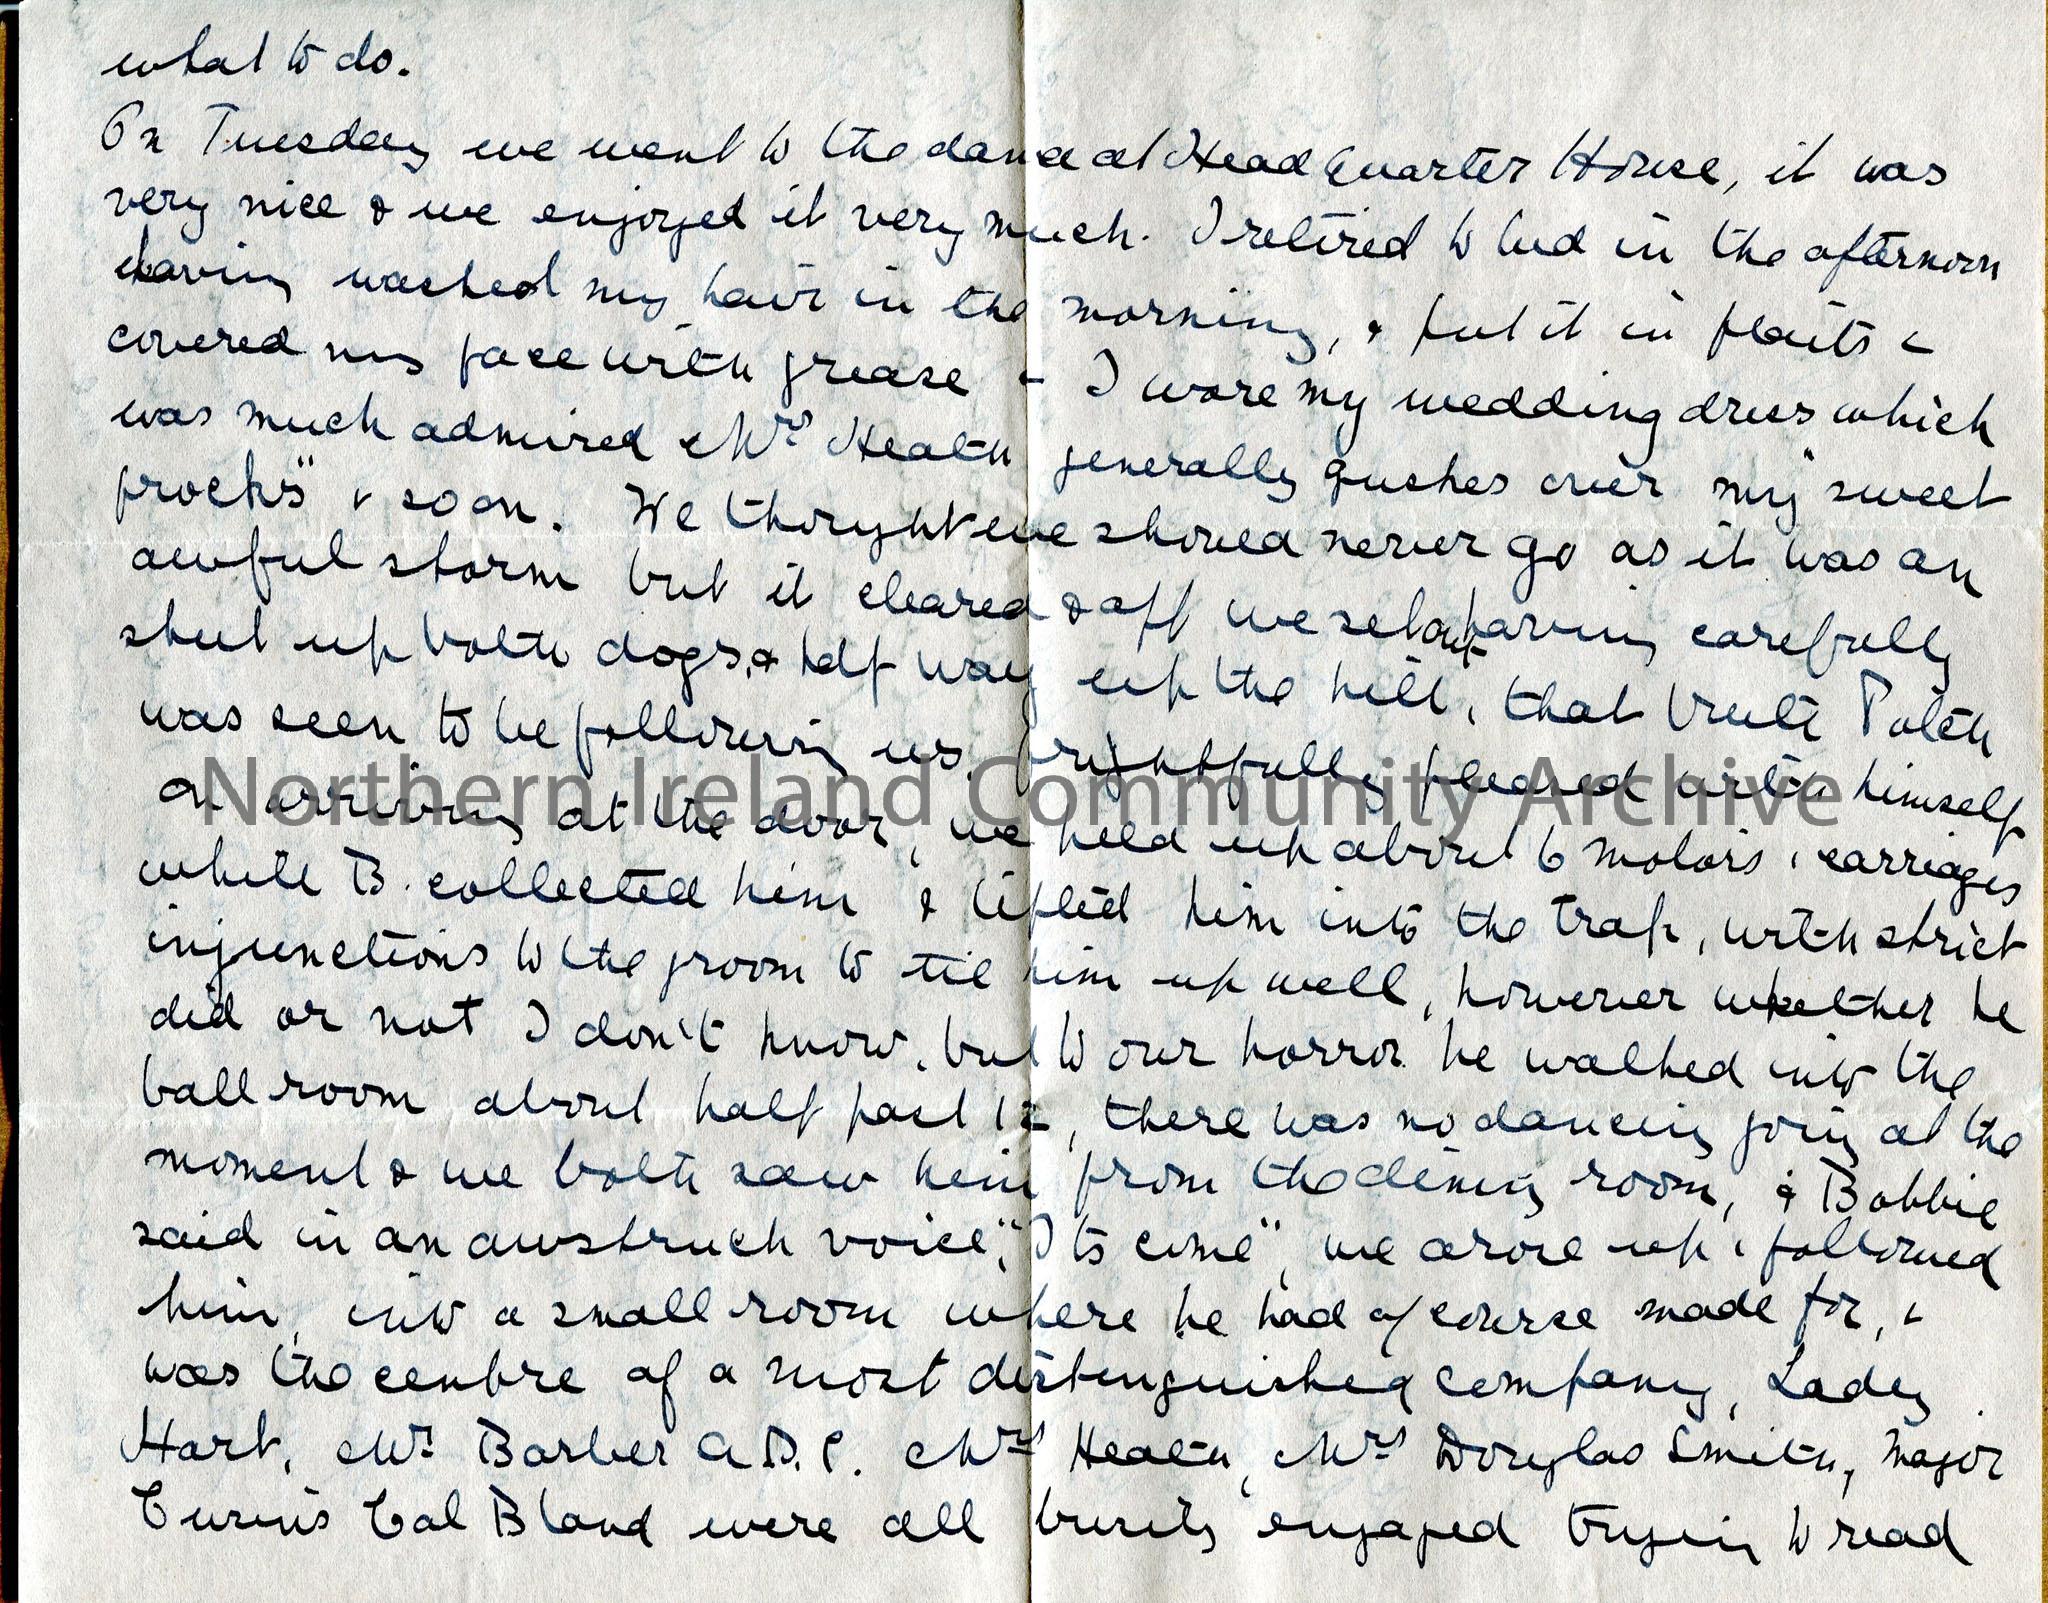 what to do.
On Tuesday we went to the dance at Head Quarter House, it was
very nice & we enjoyed it very much. I retired to bed in the afternoon
having washed my hair in the morning, & put it in plaits &
covered my face with grease - I wore my wedding dress which
was much admired & Mrs Heath generally gushes over my "sweet
frocks" & so on. We thought we should never go as it was an
awful storm but it cleared & off we set out having carefully
shut up both dogs, & half way up the hill, that brute Patch
was seen to be following us, frightfully pleased with himself
on arriving at the door, we held up about 6 motors & carriages
while B. collected him & lifted him into the trap, with strict
injunctions to the groom to tie him up well, however whether he
did or not I don't know, but to our horror he walked into the
ball room about half past 12, there was no dancing going at the
moment & we both saw him from the dining room, & Bobbie
said in an awstruck voice, "Its come", we arose up & followed
him, into a small room where he had of course made for, &
was the centre of a most distinguished company, Lady
Hart, Mr Barber A.D.C. Mrs Heath, Mrs Douglas Smith, Major
Col Bland were all busily engaged trying to read
Northern Ireland Community Archive